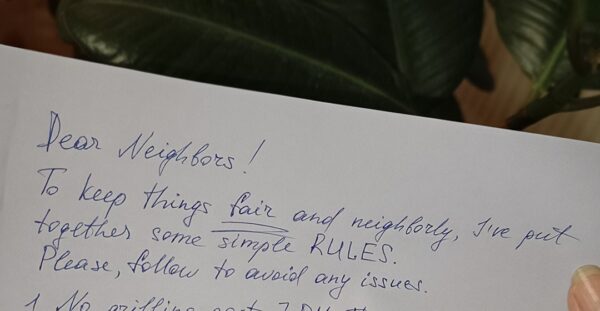 Dear Neighbors!
To keep things fair and neighborly, I've put
together some simple RULES.
Please, follow to avoid any issues.
1. No grilling past 7 PM